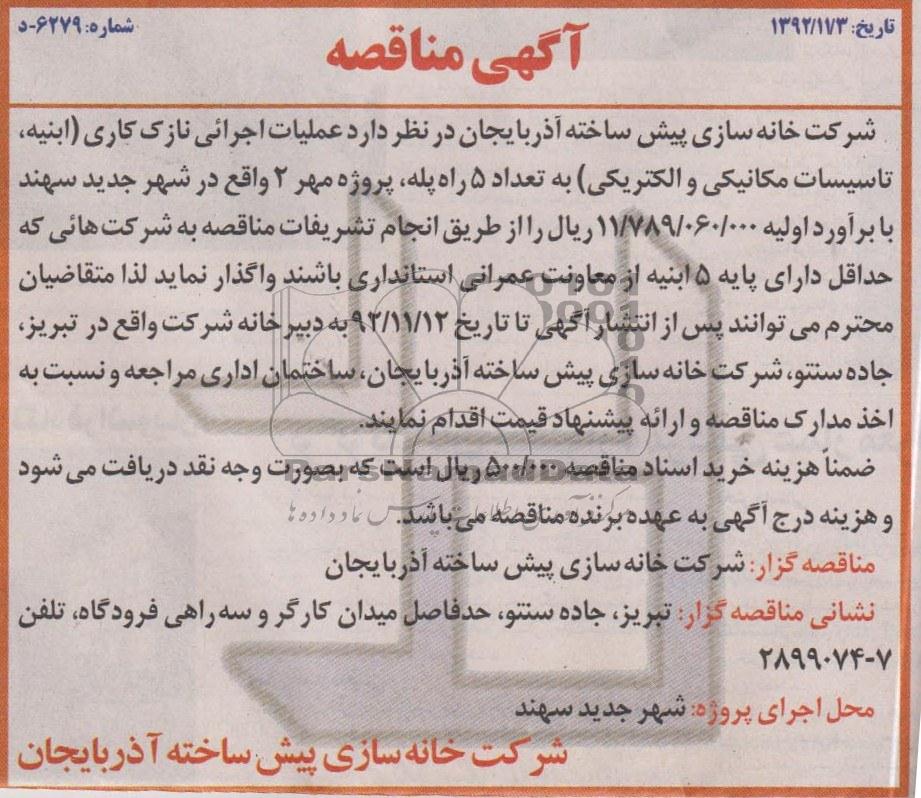 تاریخ: ۱۳۹۲/۱۱/۳
شماره: ۶۲۷۹-د
آگهی مناقصه
شرکت خانه سازی پیش ساخته آذربایجان در نظر دارد عملیات اجرائی نازک کاری (ابنیه،
تاسیسات مکانیکی و الکتریکی) به تعداد ۵ راه پله، پروژه مهر ۲ واقع در شهر جدید سهند
با برآورد اولیه ۱۱/۷۸۹/۰۶۰/۰۰۰ ریال را از طریق انجام تشریفات مناقصه به شرکت هائی که
حداقل دارای پایه ۵ ابنیه از معاونت عمرانی استانداری باشند واگذار نماید لذا متقاضیان
محترم می توانند پس از انتشار آگهی تا تاریخ ۹۲/۱۱/۱۲ به دبیرخانه شرکت واقع در تبریز،
جاده سنتو، شرکت خانه سازی پیش ساخته آذربایجان، ساختمان اداری مراجعه و نسبت به
اخذ مدارک مناقصه و ارائه پیشنهاد قیمت اقدام نمایند.
ضمناً هزینه خرید اسناد مناقصه ۵۰۰/۰۰۰ ریال است که بصورت وجه نقد دریافت می شود
ParsNamadData
و هزینه درج آگهی به عهده برنده مناقصه می باشد.
مناقصه گزار: شرکت خانه سازی پیش ساخته آذربایجان
نشانی مناقصه گزار: تبریز، جاده سنتو، حدفاصل میدان کارگر و سه راهی فرودگاه، تلفن
۲۸۹۹۰۷۴-۷
محل اجرای پروژه: شهر جدید سهند
شرکت خانه سازی پیش ساخته آذربایجان